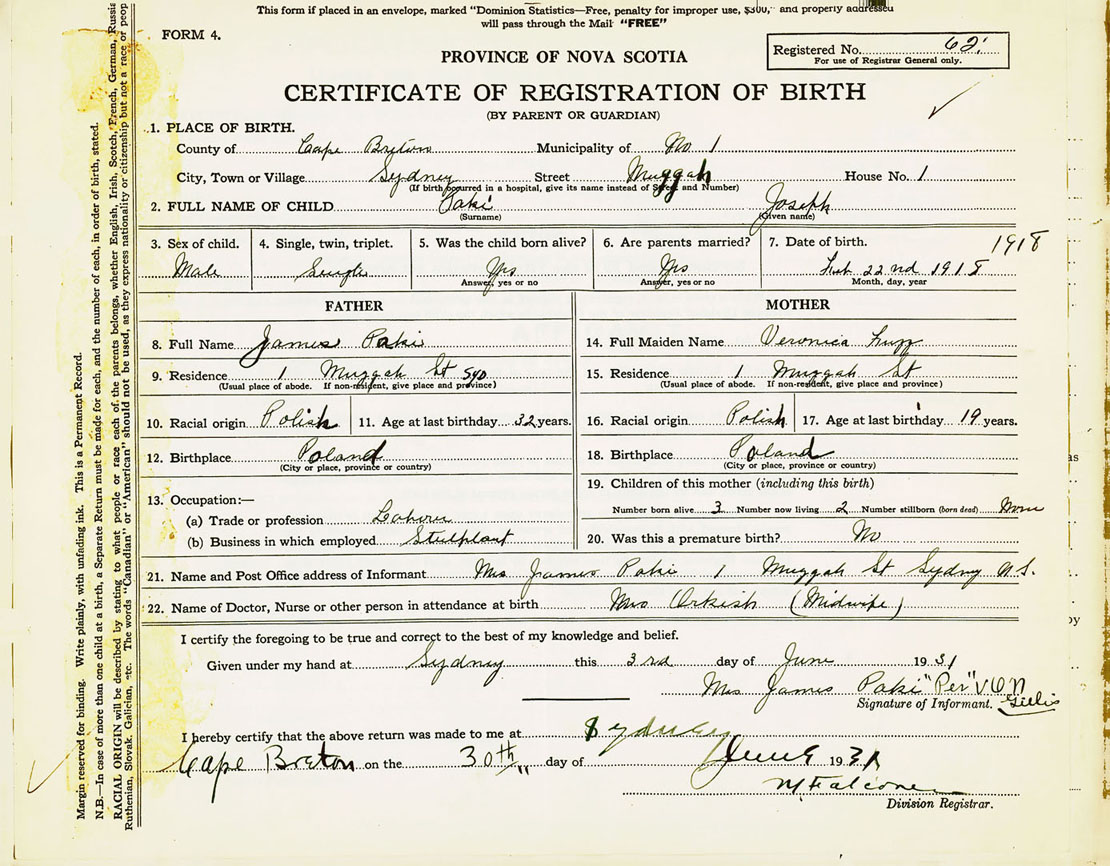 This form if placed in an envelope, marked "Dominion Statistics—Free, penalty for improper use, $300," and properly addressed
will pass through the Mail "FREE"
FORM 4.
Registered No. 62.
For use of Registrar General only.
PROVINCE OF NOVA SCOTIA
CERTIFICATE OF REGISTRATION OF BIRTH
(BY PARENT OR GUARDIAN)
1. PLACE OF BIRTH.
County of Cape Breton Municipality of No 1
City, Town or Village Sydney Street Muggah House No. 1
(If birth occurred in a hospital, give its name instead of Street and Number)
2. FULL NAME OF CHILD Paki Joseph
(Surname) (Given name)
3. Sex of child. 4. Single, twin, triplet. 5. Was the child born alive? 6. Are parents married? 7. Date of birth. 1918
Male Single Yes Yes Feb. 22nd 1918
Answer, yes or no Answer, yes or no Month, day, year
FATHER MOTHER
8. Full Name James Paki 14. Full Maiden Name Veronica
9. Residence 1 Muggah St Syd 15. Residence 1 Muggah St
(Usual place of abode. If non-resident, give place and province) (Usual place of abode. If non-resident, give place and province)
10. Racial origin Polish 11. Age at last birthday 32 years. 16. Racial origin Polish 17. Age at last birthday 19 years.
12. Birthplace Poland 18. Birthplace Poland
(City or place, province or country) (City or place, province or country)
13. Occupation:— 19. Children of this mother (including this birth)
(a) Trade or profession Laborer Number born alive 3 Number now living 2 Number stillborn (born dead) None
(b) Business in which employed Steelplant 20. Was this a premature birth? No
21. Name and Post Office address of Informant Mrs James Paki 1 Muggah St Sydney N.S.
22. Name of Doctor, Nurse or other person in attendance at birth Mrs Orkish (Midwife)
I certify the foregoing to be true and correct to the best of my knowledge and belief.
Given under my hand at Sydney this 3rd day of June 1931
Mrs James Paki "Per" V.O.N
Signature of Informant. Gillis
I hereby certify that the above return was made to me at Sydney
Cape Breton on the 30th day of June 1931
Falconer
Division Registrar.
Margin reserved for binding. Write plainly, with unfading ink. This is a Permanent Record.
N.B.—In case of more than one child at a birth, a Separate Return must be made for each, and the number of each, in order of birth, stated.
RACIAL ORIGIN will be described by stating to what people or race each of the parents belongs, whether English, Irish, Scotch, French, German, Russia
Ruthenian, Slovak, Galician, etc. The words "Canadian" or "American" should not be used, as they express nationality or citizenship but not a race or peop